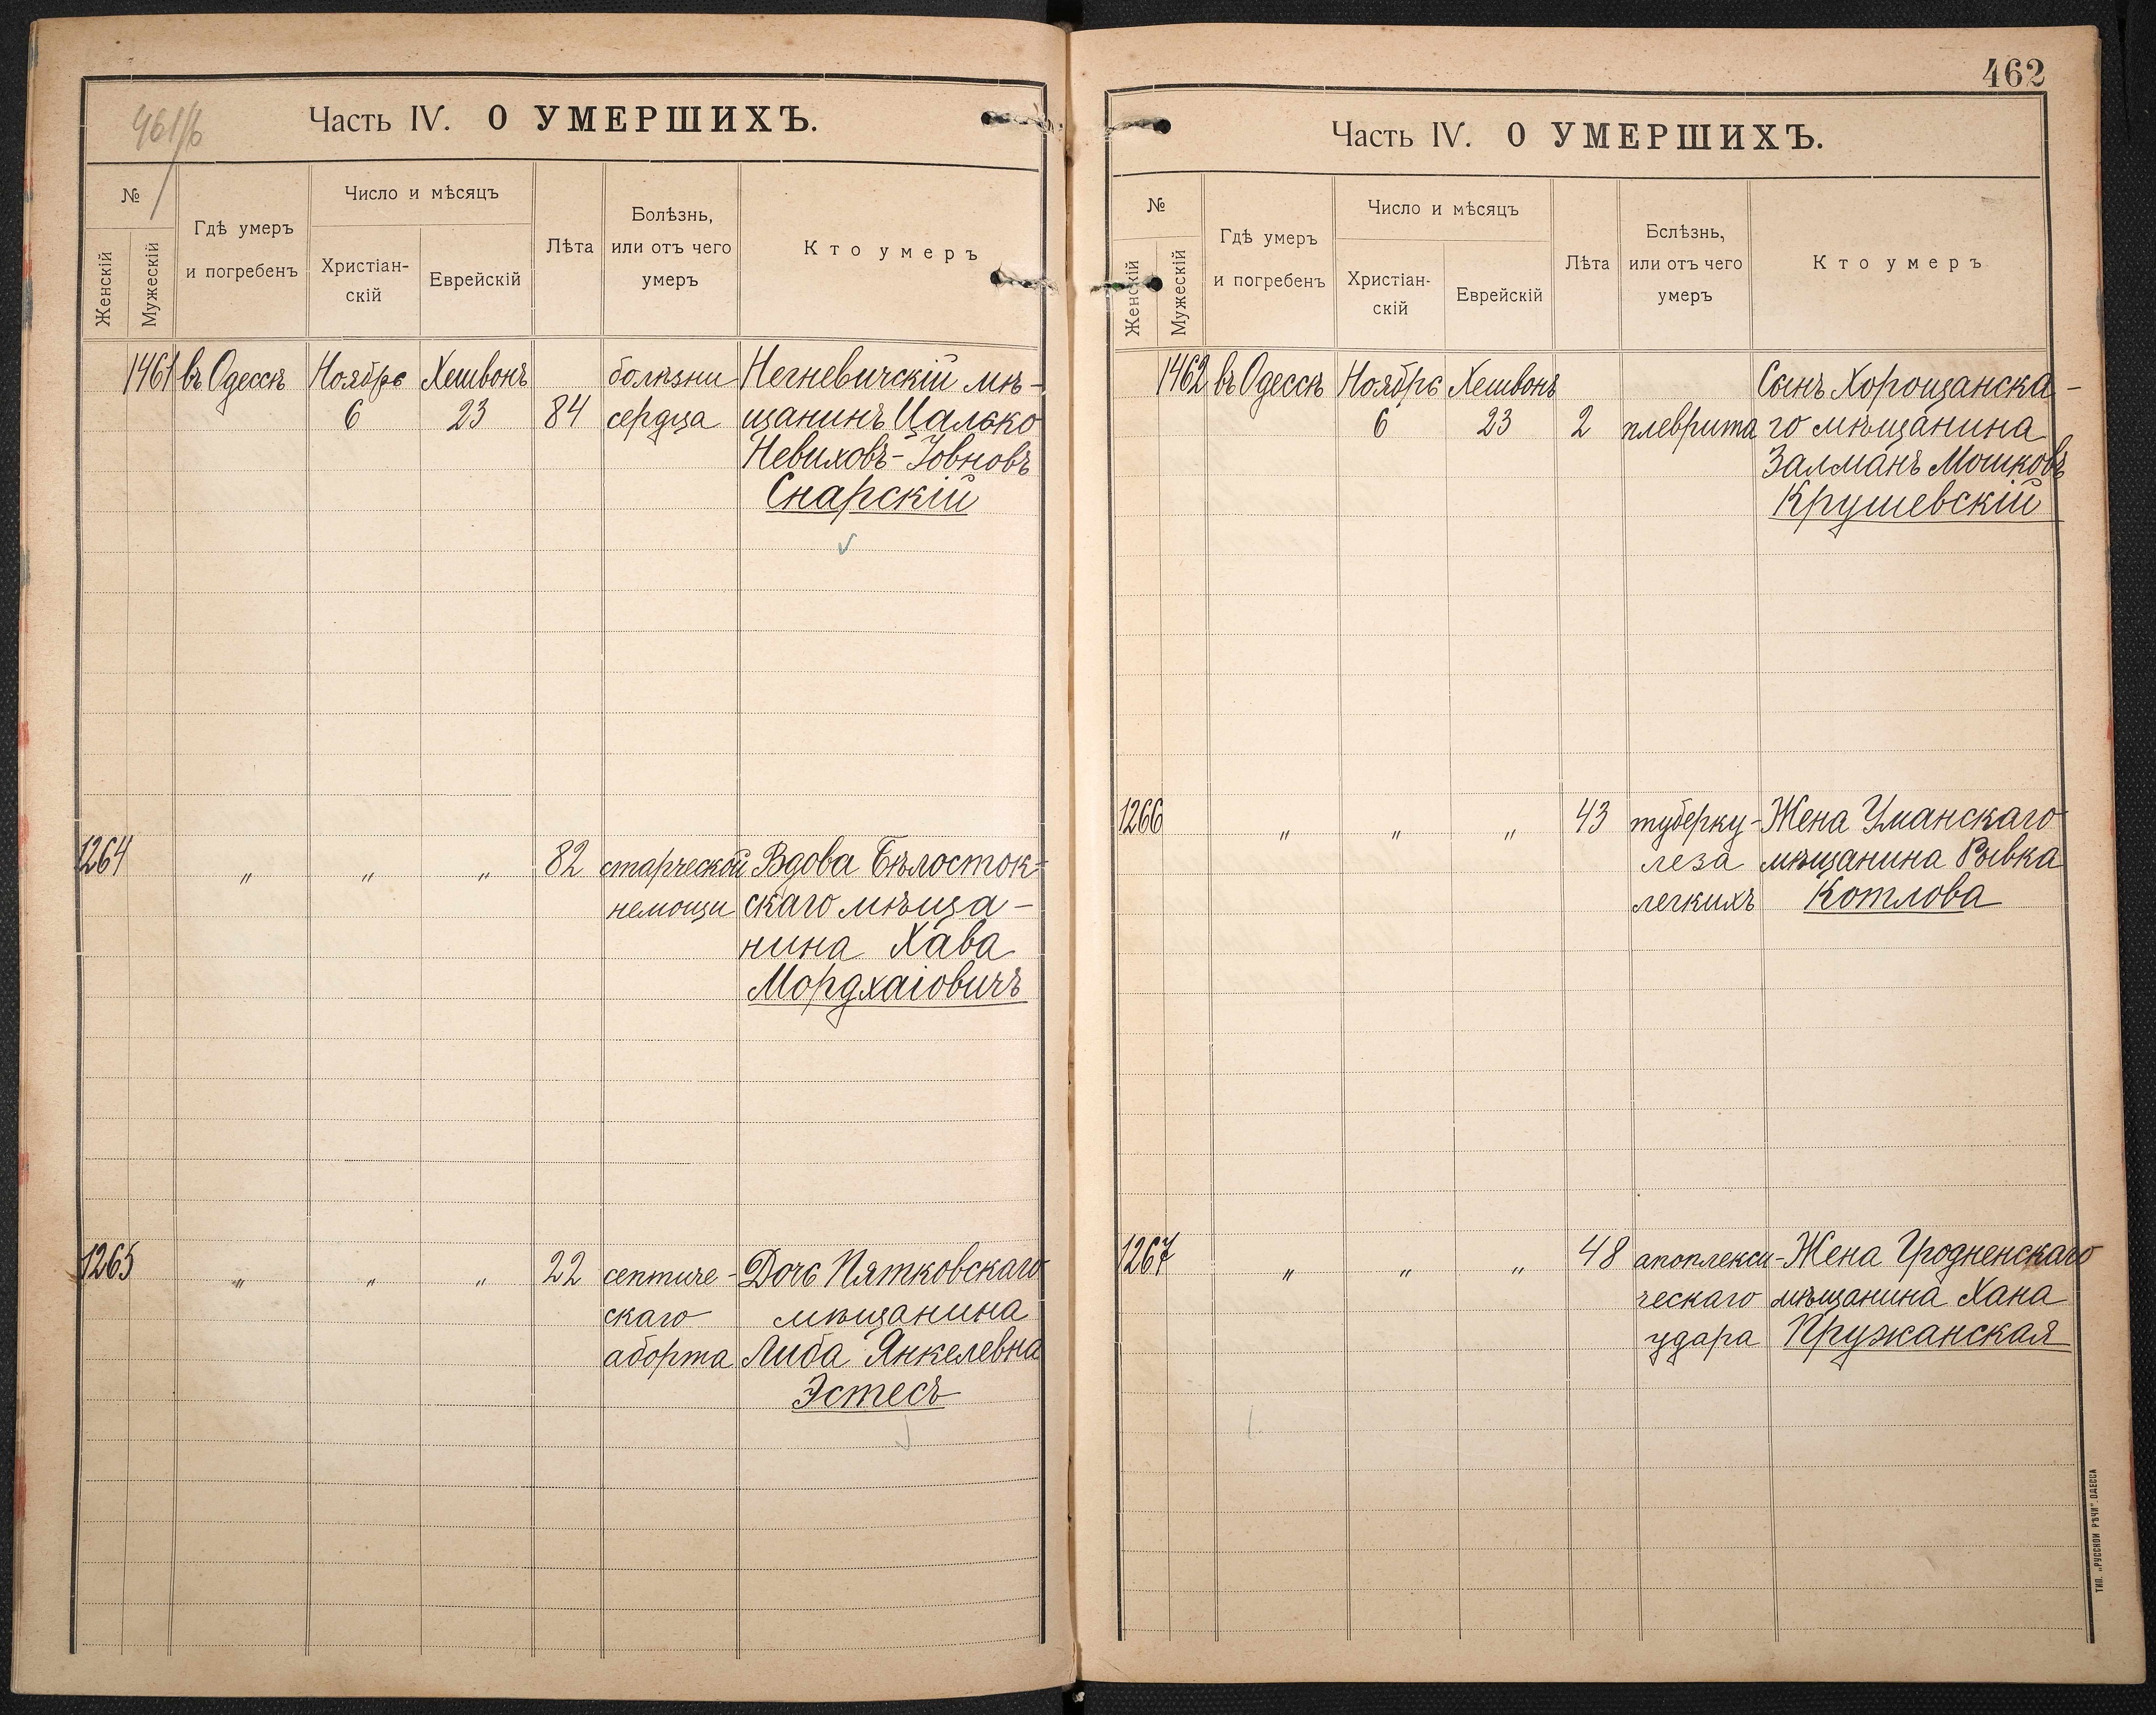 461/б
Часть IV. О УМЕРШИХЪ.
№
Женскій
Мужескій
Гдѣ умеръ
и погребенъ
Число и мѣсяцъ
Христіан-
скій
Еврейскій
Лѣта
Болѣзнь,
или отъ чего
умеръ
Кто умеръ
1461 въ Одессѣ Ноябрь Хешвонъ болѣзни Негневичскій мѣ-
6 23 84 сердца щанинъ Цалько
Невиховъ-Іовновъ
Снарскій
1264 „ „ „ 82 старческой Вдова Бѣлосток-
немощи скаго мѣща-
нина Хава
Мордхаіовичъ
1265 „ „ „ 22 септиче- Дочь Пятковскаго
скаго мѣщанина
аборта Либа Янкелевна
Эстесъ
462
Часть IV. О УМЕРШИХЪ.
№
Женскій
Мужескій
Гдѣ умеръ
и погребенъ
Число и мѣсяцъ
Христіан-
скій
Еврейскій
Лѣта
Бслѣзнь,
или отъ чего
умеръ
Кто умеръ
1462 въ Одессѣ Ноябрь Хешвонъ Сынъ Хорощанска-
6 23 2 плеврита го мѣщанина
Залманъ Мошковъ
Крушевскій
1266 „ „ „ 43 туберку- Жена Уманскаго
леза мѣщанина Рывка
легкихъ Котлова
1267 „ „ „ 48 апоплекси- Жена Гродненскаго
ческаго мѣщанина Хана
удара Пружанская
ТИП. „РУССКОЙ РѢЧИ". ОДЕССА